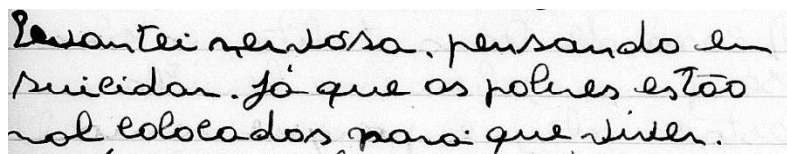 Levantei nervosa. pensando em
suicidar. Já que os pobres estão
mal colocados para que viver.